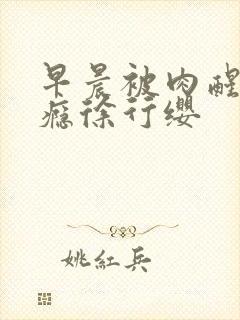 早晨被肉醒
瘾徐行缨
姚紅兵